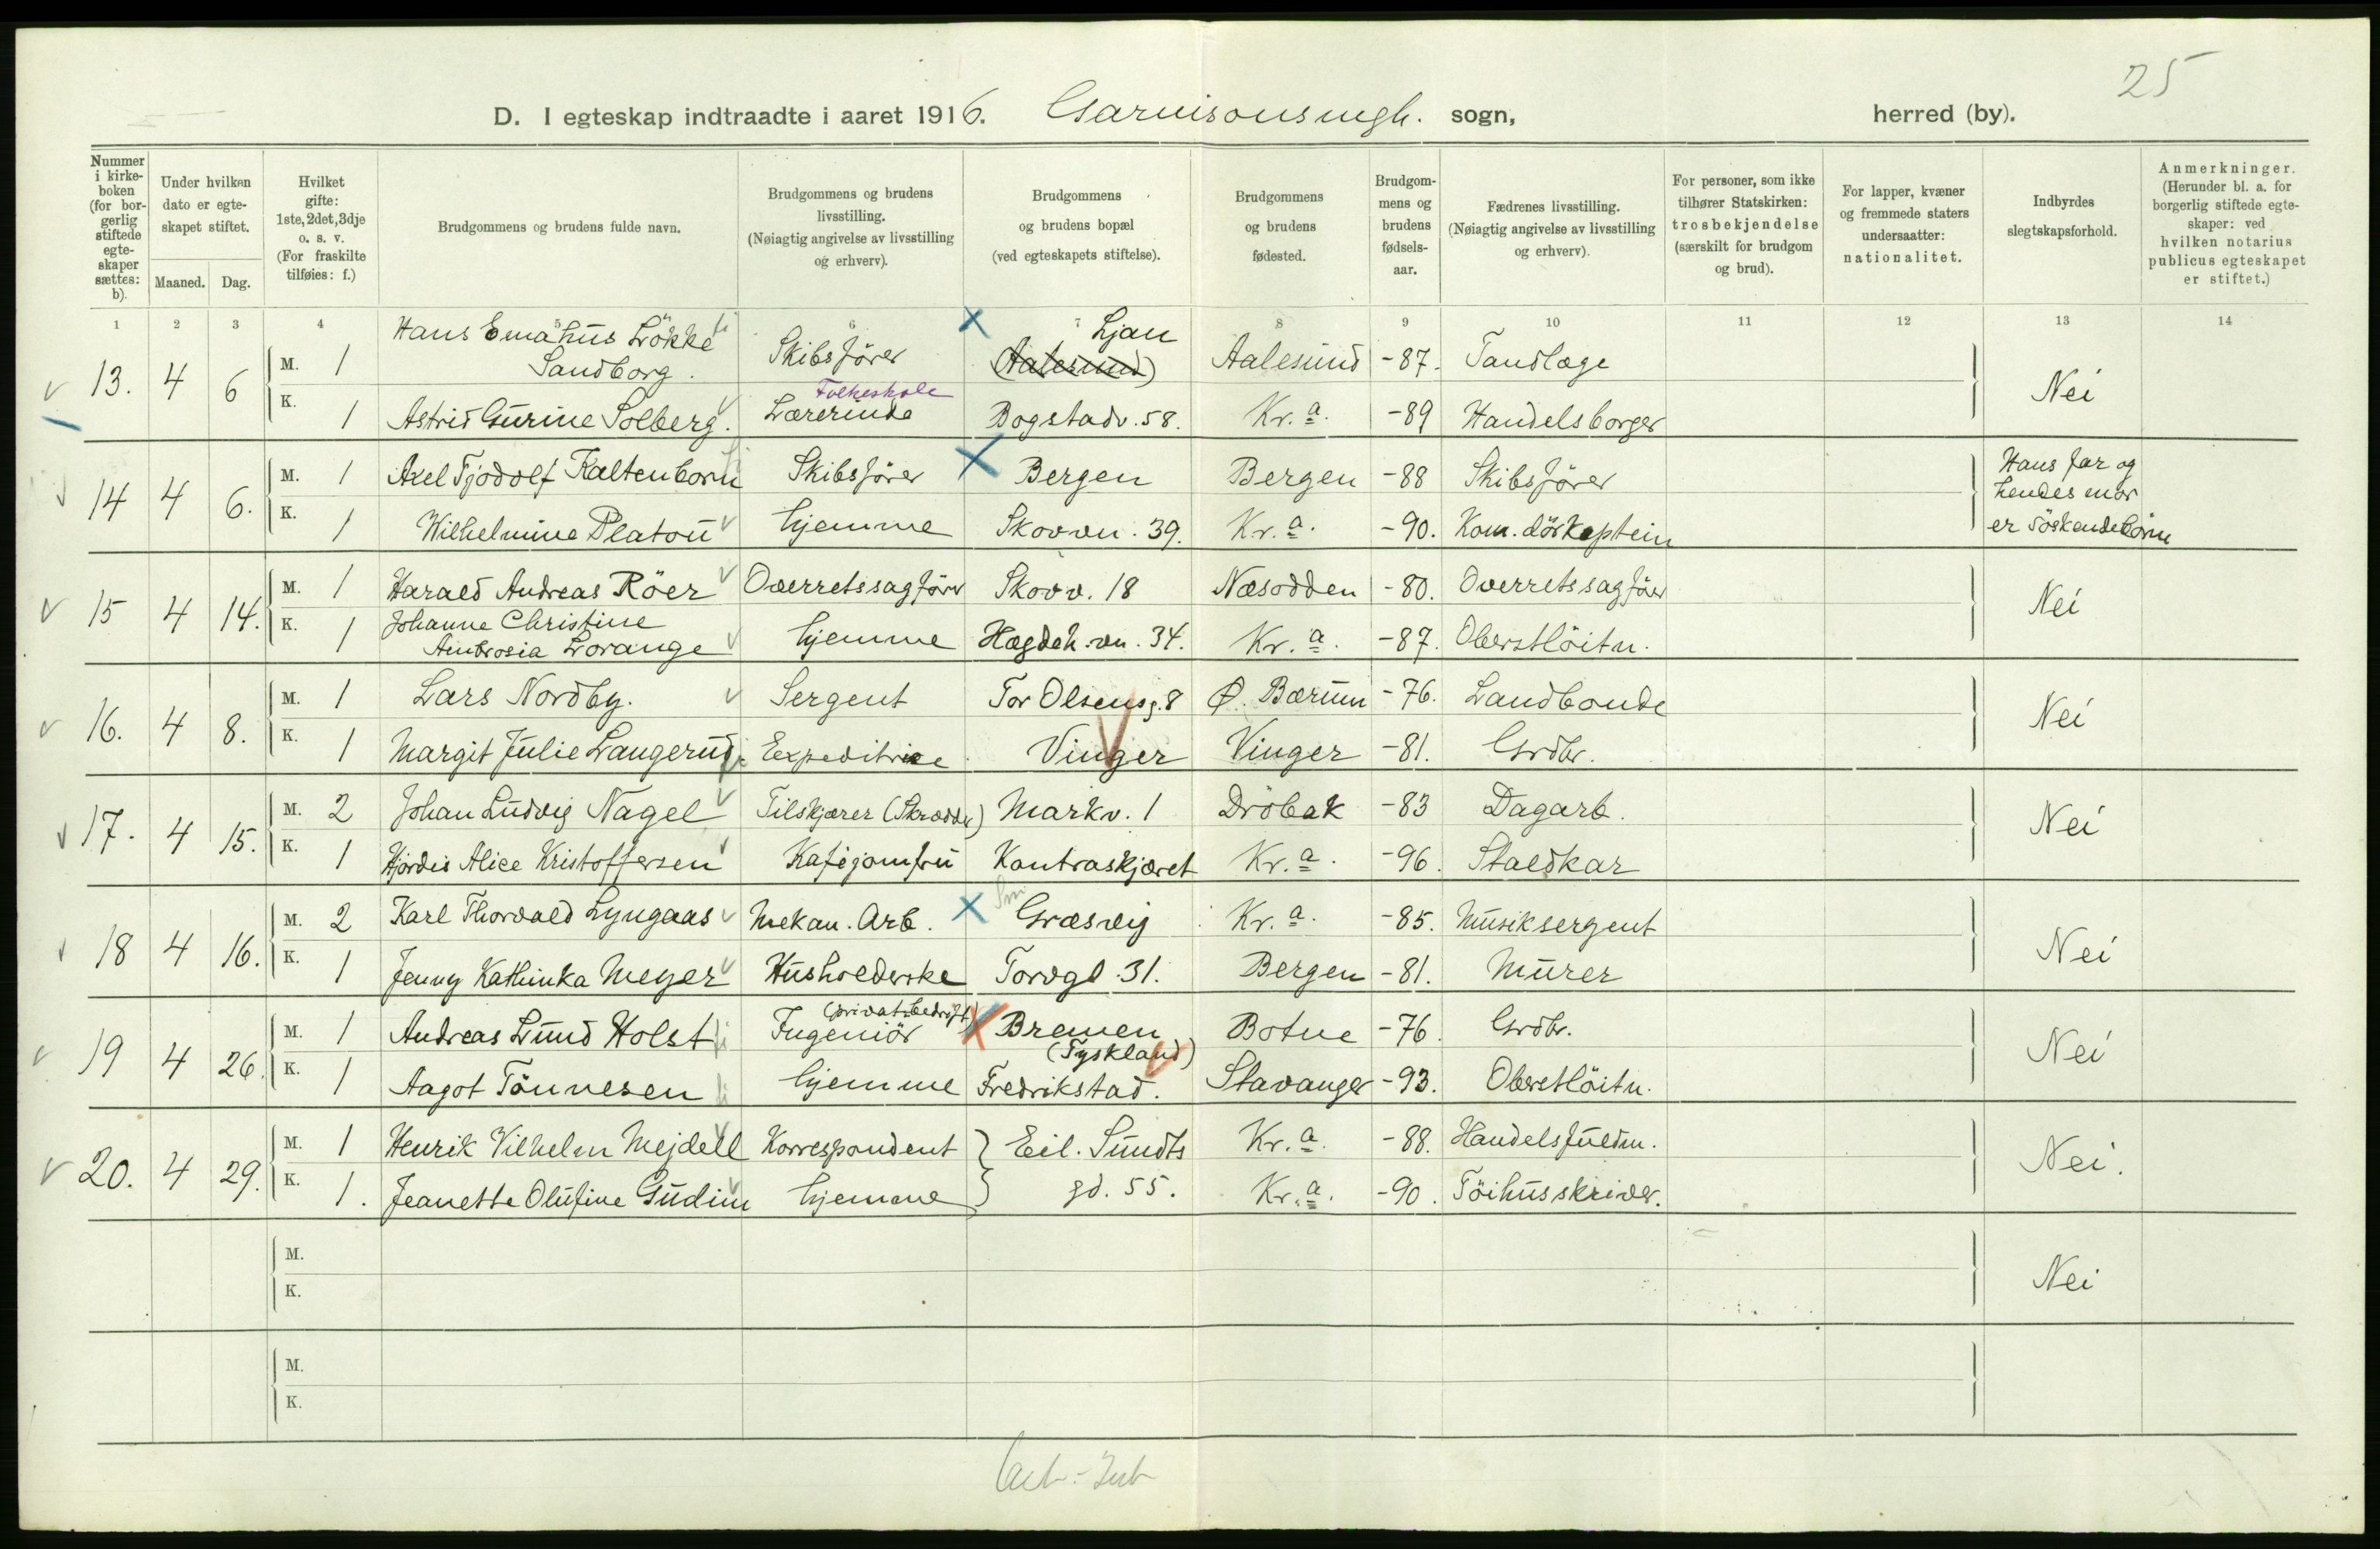 25
D. I egteskap indtraadte i aaret 1916. Garnisonsmgh. sogn, herred (by).
Nummer i kirkeboken (for borgerlig stiftede egteskaper sættes: b).
Under hvilken dato er egteskapet stiftet.
Maaned. Dag.
Hvilket gifte: 1ste, 2det, 3dje o. s. v. (For fraskilte tilføies: f.)
Brudgommens og brudens fulde navn.
Brudgommens og brudens livsstilling. (Nøiagtig angivelse av livsstilling og erhverv).
Brudgommens og brudens bopæl (ved egteskapets stiftelse).
Brudgommens og brudens fødested.
Brudgommens og brudens fødselsaar.
Fædrenes livsstilling. (Nøiagtig angivelse av livsstilling og erhverv).
For personer, som ikke tilhører Statskirken: trosbekjendelse (særskilt for brudgom og brud).
For lapper, kvæner og fremmede staters undersaatter: nationalitet.
Indbyrdes slegtskapsforhold.
Anmerkninger. (Herunder bl. a. for borgerlig stiftede egteskaper: ved hvilken notarius publicus egteskapet er stiftet.)
1 2 3 4 5 6 7 8 9 10 11 12 13 14
13. 4 6 M. 1 Hans Emahus Lökke Sandborg. Skibsförer (Aalesund) Ljan Aalesund -87. Tandlæge Nei
K. 1 Astrid Gurine Solberg. Folkeskole Lærerinde Bogstadv. 58. Kr.a. -89 Handelsborger
14 4 6. M. 1 Axel Tjodolf Kaltenborn Skibsförer Bergen Bergen -88 Skibsförer Hans far og hendes mor er söskendebörn
K. 1 Wilhelmine Platou hjemme Skovvn. 39. Kr.a. -90. Kom.dörkaptein
15 4 14. M. 1 Harald Andreas Röer Overretssagförer Skovv. 18 Næsodden -80. Overretssagförer Nei
K. 1 Johanne Christine Ambrosia Lorange hjemme Hægdeh.vn. 34. Kr.a. -87. Oberstlöitn.
16. 4 8. M. 1 Lars Nordby. Sergent Tor Olsensg. 8 Ø. Bærum -76. Landbonde Nei
K. 1 Margit Julie Langerud Expeditrice Vinger Vinger -81. Grdbr.
17. 4 15. M. 2 Johan Ludvig Nagel Tilskjærer (Skrædder) Markv. 1 Dröbak -83 Dagarb. Nei
K. 1 Hjördis Alice Kristoffersen Kaféjomfru Kontraskjæret Kr.a. -96. Staldkar
18 4 16. M. 2 Karl Thorvald Lyngaas Mekan. Arb. Græsvig Kr.a. -85. Musiksergent Nei
K. 1 Jenny Kathinka Meyer Husholderske Torvgd. 31. Bergen -81. Murer
19 4 26. M. 1 Andreas Lund Holst Ingeniör (privatbedrift) Bremen (Tyskland) Botne -76. Grdbr. Nei
K. 1 Aagot Tönnesen hjemme Fredrikstad. Stavanger -93. Oberstlöitn.
20. 4 29. M. 1 Henrik Vilhelm Mejdell Korrespondent Eil. Sundts Kr.a. -88. Handelsfuldm. Nei.
K. 1. Jeanette Olufine Gudim hjemme gd. 55. Kr.a. -90. Töihusskriver.
M. Nei
K.
M.
K.